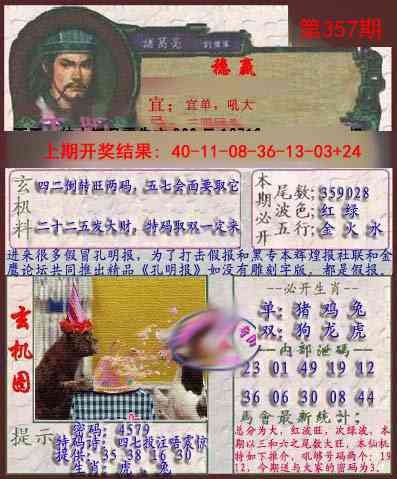 第357期
諸葛亮
劉備軍
稳赢
宜：宜单，吼大
上期开奖结果：40-11-08-36-13-03+24
玄机料
四二倒转旺两码，五七会面要取它
二十二五发大财，特码取双一定来
本期必开
尾数;359028
波色;红 绿
五行;金 火 水
进来很多假冒孔明报，为了打击假报和黑专本辉煌报社联和金
鹰论坛共同推出精品《孔明报》如没有雕刻字版，都是假报。
玄机图
必开生肖
单：猪 鸡 兔
双：狗 龙 虎
内部泄码
23 01 49 19 12
36 06 30 08 44
馬會最新統计：
总分为大，红波旺，次绿波，本
期以三和六之尾数大旺，本仙机
特如下推介，吼够号码两个：19
12，今期送与大家的密码为3.
提示
密码：4579
特码诗：四七投注唔震惊
提供：35 38 16 30
生肖：虎 兔